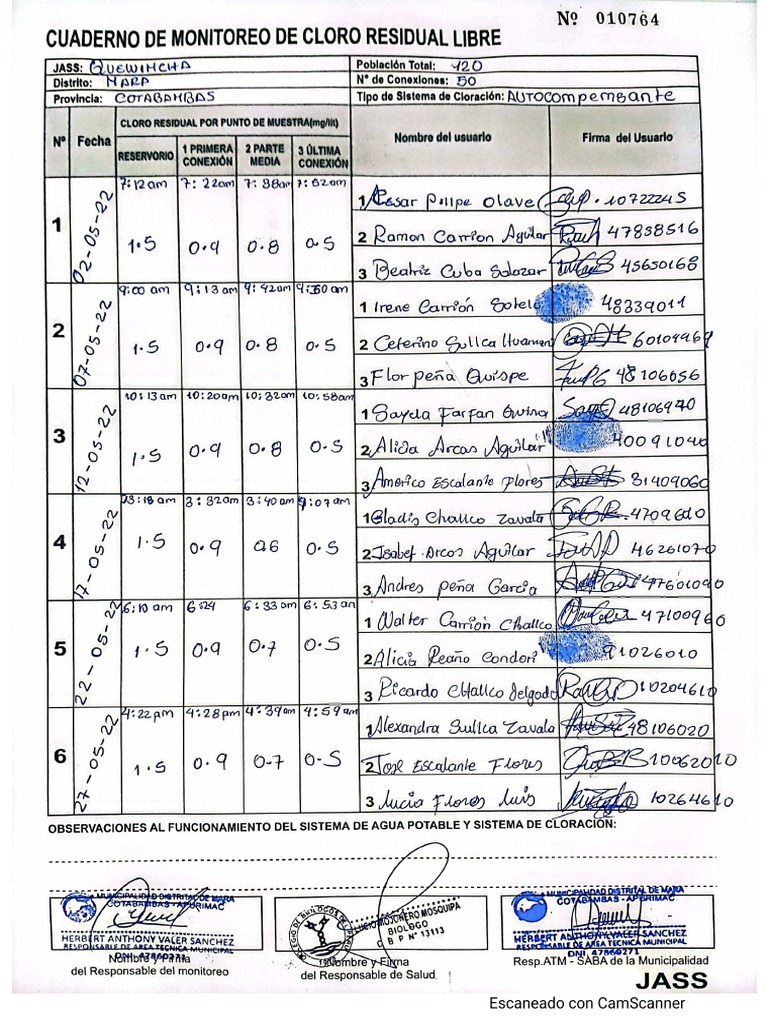 Nº 010764
CUADERNO DE MONITOREO DE CLORO RESIDUAL LIBRE
JASS: QUEWINCHA Población Total: 120
Distrito: MARA N° de Conexiones: 50
Provincia: COTABAMBAS Tipo de Sistema de Cloración: AUTOCOMPEMSANTE
Nº Fecha CLORO RESIDUAL POR PUNTO DE MUESTRA(mg/lit) Nombre del usuario Firma del Usuario
RESERVORIO 1 PRIMERA CONEXIÓN 2 PARTE MEDIA 3 ÚLTIMA CONEXIÓN
1 02-05-22 7:12am 7:22am 7:38am 7:52am
1.5 0.9 0.8 0.5
1 Cesar Felipe Olave 10722245
2 Ramon Carrion Aguilar 47838516
3 Beatriz Cuba Salazar 45650168
2 07-05-22 9:00am 9:13am 9:42am
1.5 0.9 0.8 0.5
1 Irene Carrión Sotelo 48339011
2 Ceferino Sullca Huaman 60104969
3 Flor peña Quispe 48106056
3 12-05-22 10:13am 10:20am 10:32am 10:58am
1.5 0.9 0.8 0.5
1 Sayda Farfan 48106970
2 Alida Arcos Aguilar 40091040
3 Americo Escalante Flores 31409060
4 17-05-22 3:18am 3:32am 3:40am :07am
1.5 0.9 0.6 0.5
1 Gladis Challco Zavala 4709610
2 Isabel Arcos Aguilar 46261070
3 Andres peña Garcia 47601090
5 22-05-22 6:10am 6:24 6:33am 6:53am
1.5 0.9 0.7 0.5
1 Walter Carrión Challco 47100960
2 Alicia Reaño Condori 91026010
3 Ricardo Challco Delgado 10204610
6 27-05-22 4:22pm 4:28pm 4:39am 4:59am
1.5 0.9 0.7 0.5
1 Alexandra Sullca Zavala 48106020
2 Jose Escalante Flores 10062010
3 Lucia Flores Luis 10264610
OBSERVACIONES AL FUNCIONAMIENTO DEL SISTEMA DE AGUA POTABLE Y SISTEMA DE CLORACIÓN:
MUNICIPALIDAD DISTRITAL DE MARA
COTABAMBAS - APURIMAC
HERBERT ANTHONY VALER SANCHEZ
RESPONSABLE DE AREA TECNICA MUNICIPAL
DNI. 47860271
Nombre y Firma
del Responsable del monitoreo
MOSQUIPA
BIOLOGO
C B P N° 13113
Nombre y Firma
del Responsable de Salud
MUNICIPALIDAD DISTRITAL DE MARA
COTABAMBAS - APURIMAC
HERBERT ANTHONY VALER SANCHEZ
RESPONSABLE DE AREA TECNICA MUNICIPAL
DNI. 47860271
Resp.ATM - SABA de la Municipalidad
JASS
Escaneado con CamScanner